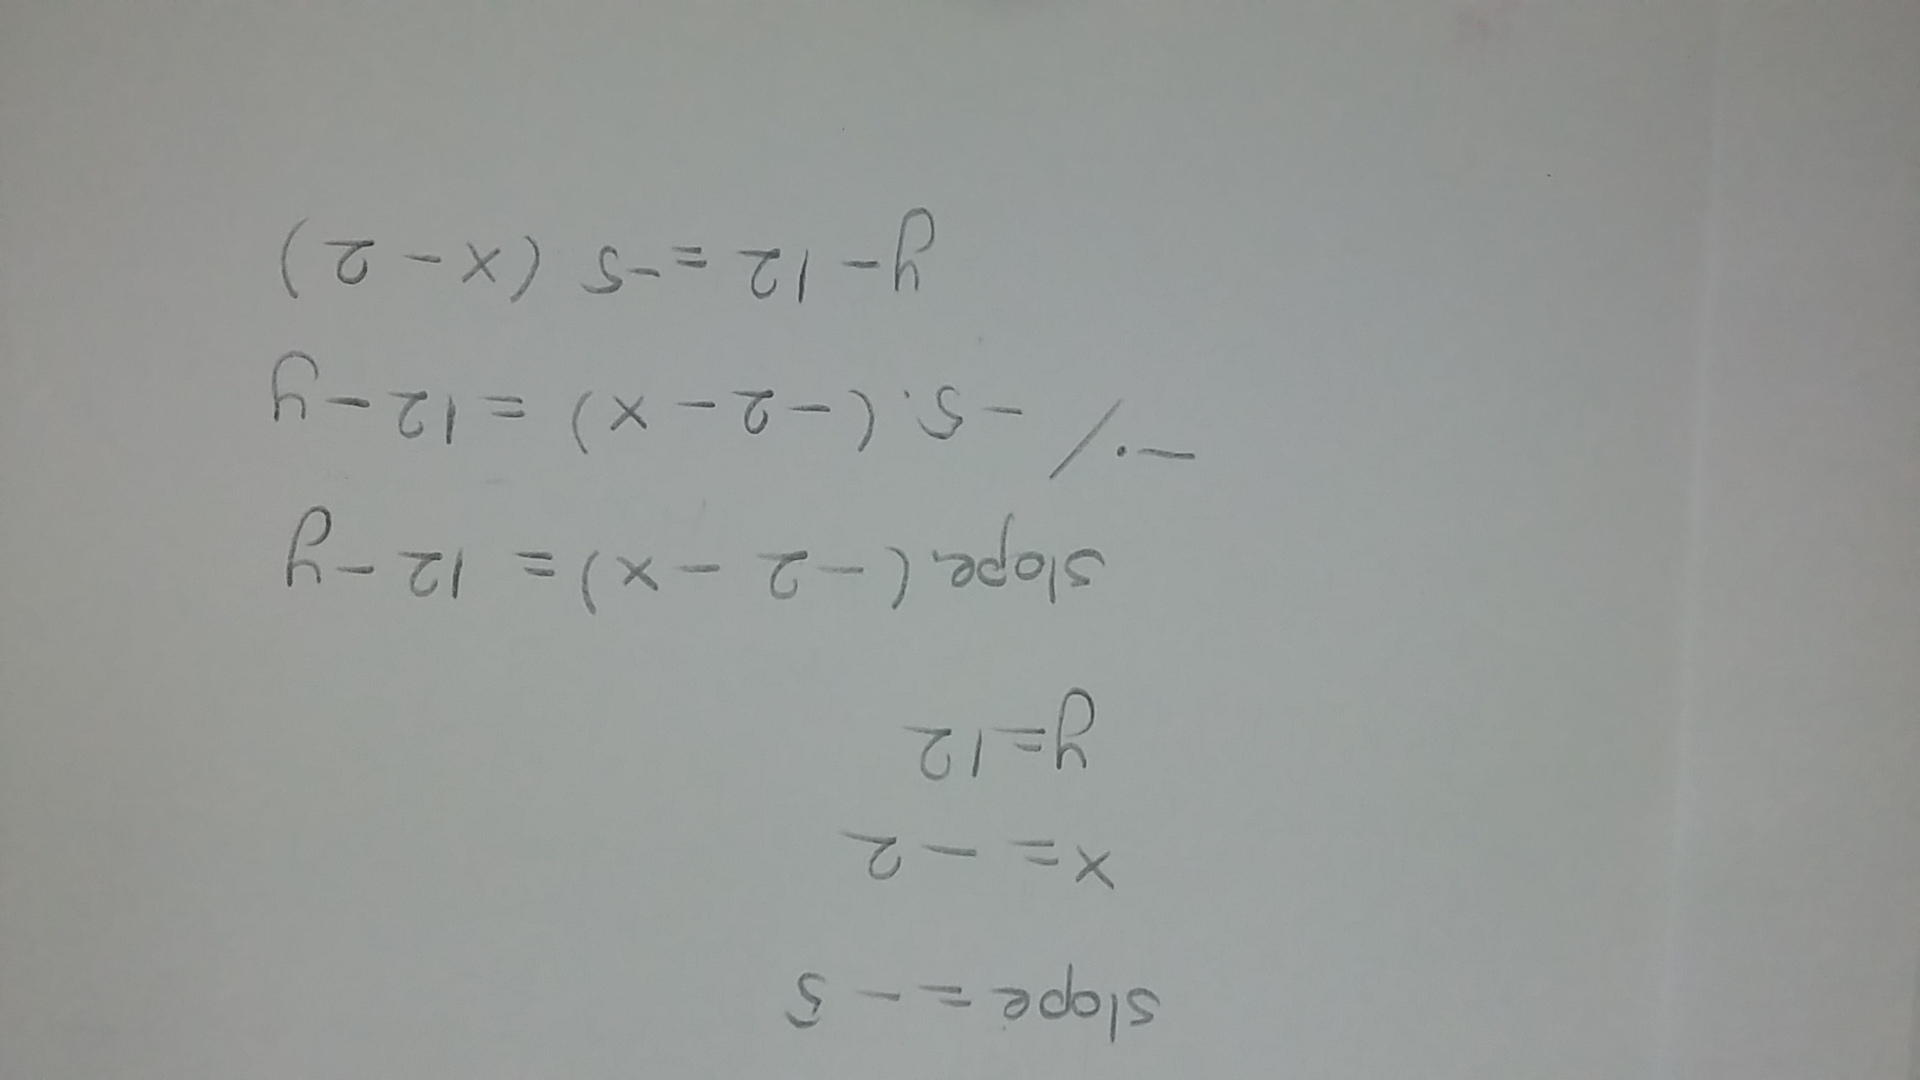 slope = - 5
x = - 2
y = 12
slope (- 2 - x) = 12 - y
- · / - 5 · (- 2 - x) = 12 - y
y - 12 = - 5 (x - 2)